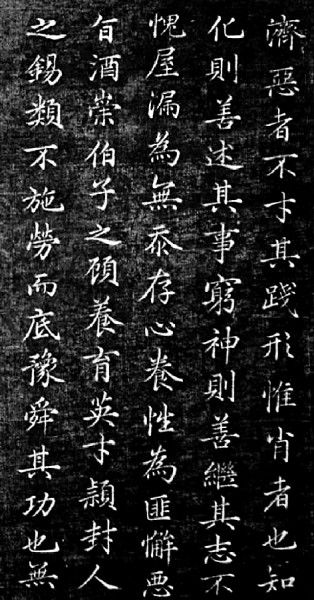 濟惡者不才其踐形惟肖者也知
化則善述其事窮神則善繼其志不
愧屋漏為無忝存心養性為匪懈悪
旨酒崇伯子之顧養育英才穎封人
之錫類不施勞而底豫舜其功也無